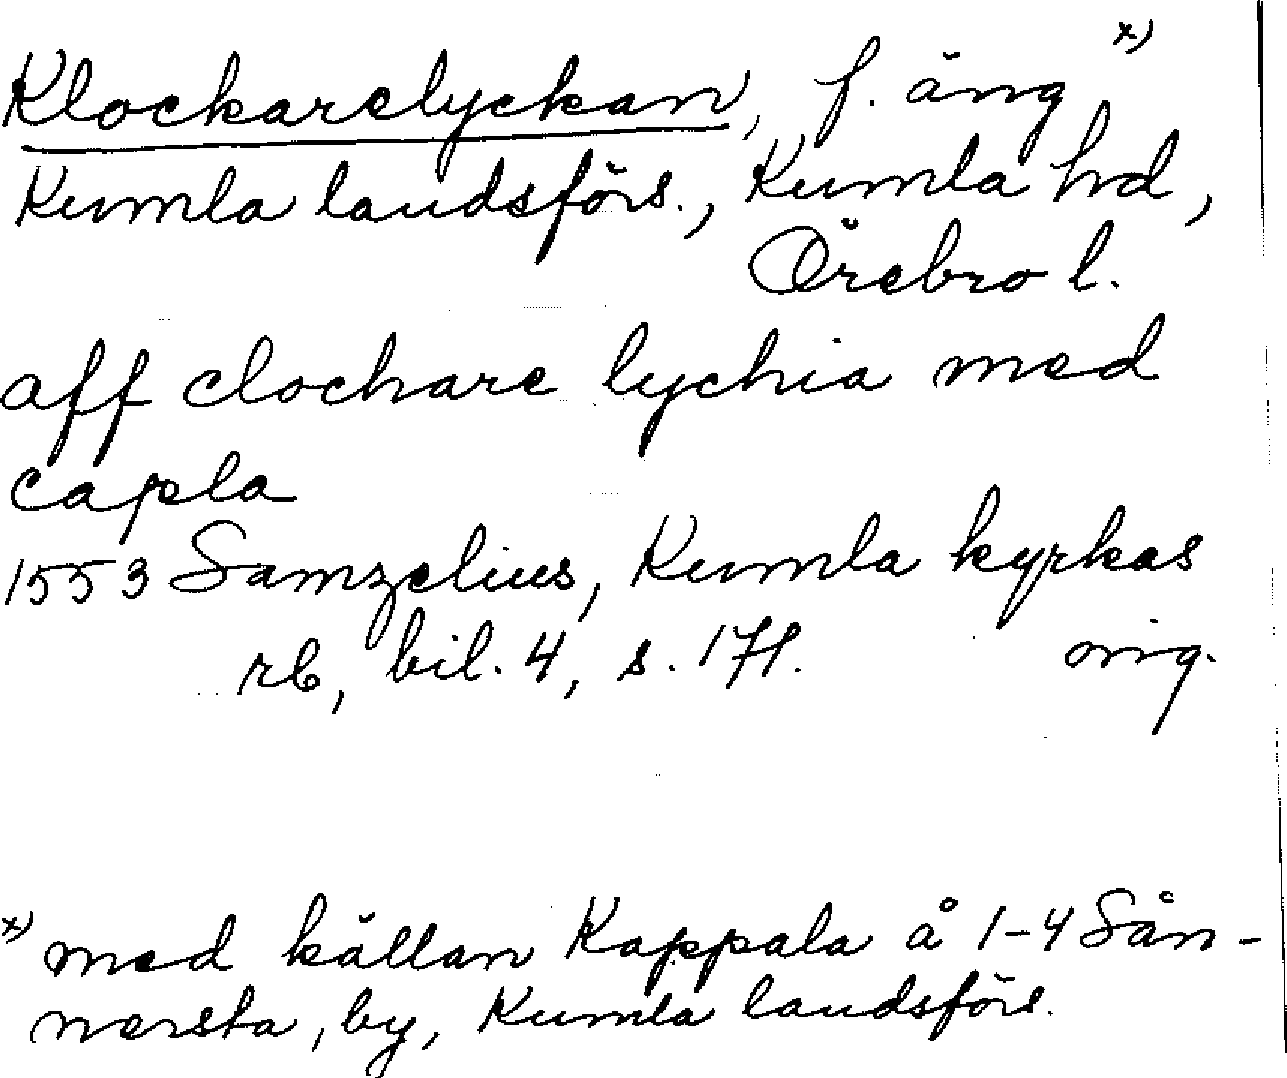 Klockarelyckan, f. äng x)
Kumla landsförs., Kumla hd,
Örebro l.
aff clochare lychia med
capla
1553 Samzelius, Kumla kyrkas
rb, bil. 4, s. 171. orig.
x) med källan Kappala å 1-4 Sån-
nersta, by, Kumla landsförs.